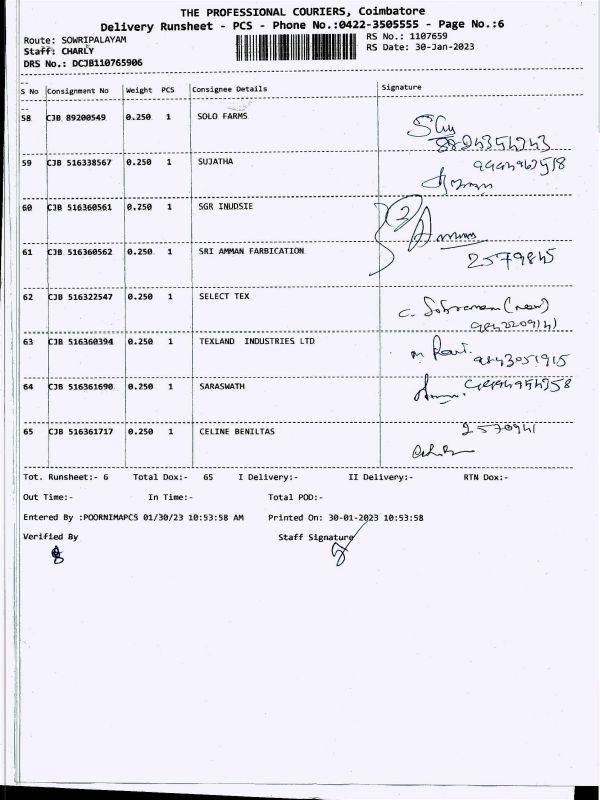 THE PROFESSIONAL COURIERS, Coimbatore
Delivery Runsheet - PCS - Phone No.:0422-3505555 - Page No.:6
Route: SOWRIPALAYAM
RS No.: 1107659
Staff: CHARLY
RS Date: 30-Jan-2023
DRS No.: DCJB110765906
S No Consignment No Weight PCS Consignee Details Signature
58 CJB 89200549 0.250 1 SOLO FARMS
59 CJB 516338567 0.250 1 SUJATHA
60 CJB 516360561 0.250 1 SGR INUDSIE
2
61 CJB 516360562 0.250 1 SRI AMMAN FARBICATION
2579845
62 CJB 516322547 0.250 1 SELECT TEX
63 CJB 516360394 0.250 1 TEXLAND INDUSTRIES LTD
64 CJB 516361690 0.250 1 SARASWATH
65 CJB 516361717 0.250 1 CELINE BENILTAS
2570941
Tot. Runsheet:- 6 Total Dox:- 65 I Delivery:- II Delivery:- RTN Dox:-
Out Time:- In Time:- Total POD:-
Entered By :POORNIMAPCS 01/30/23 10:53:58 AM Printed On: 30-01-2023 10:53:58
Verified By Staff Signature